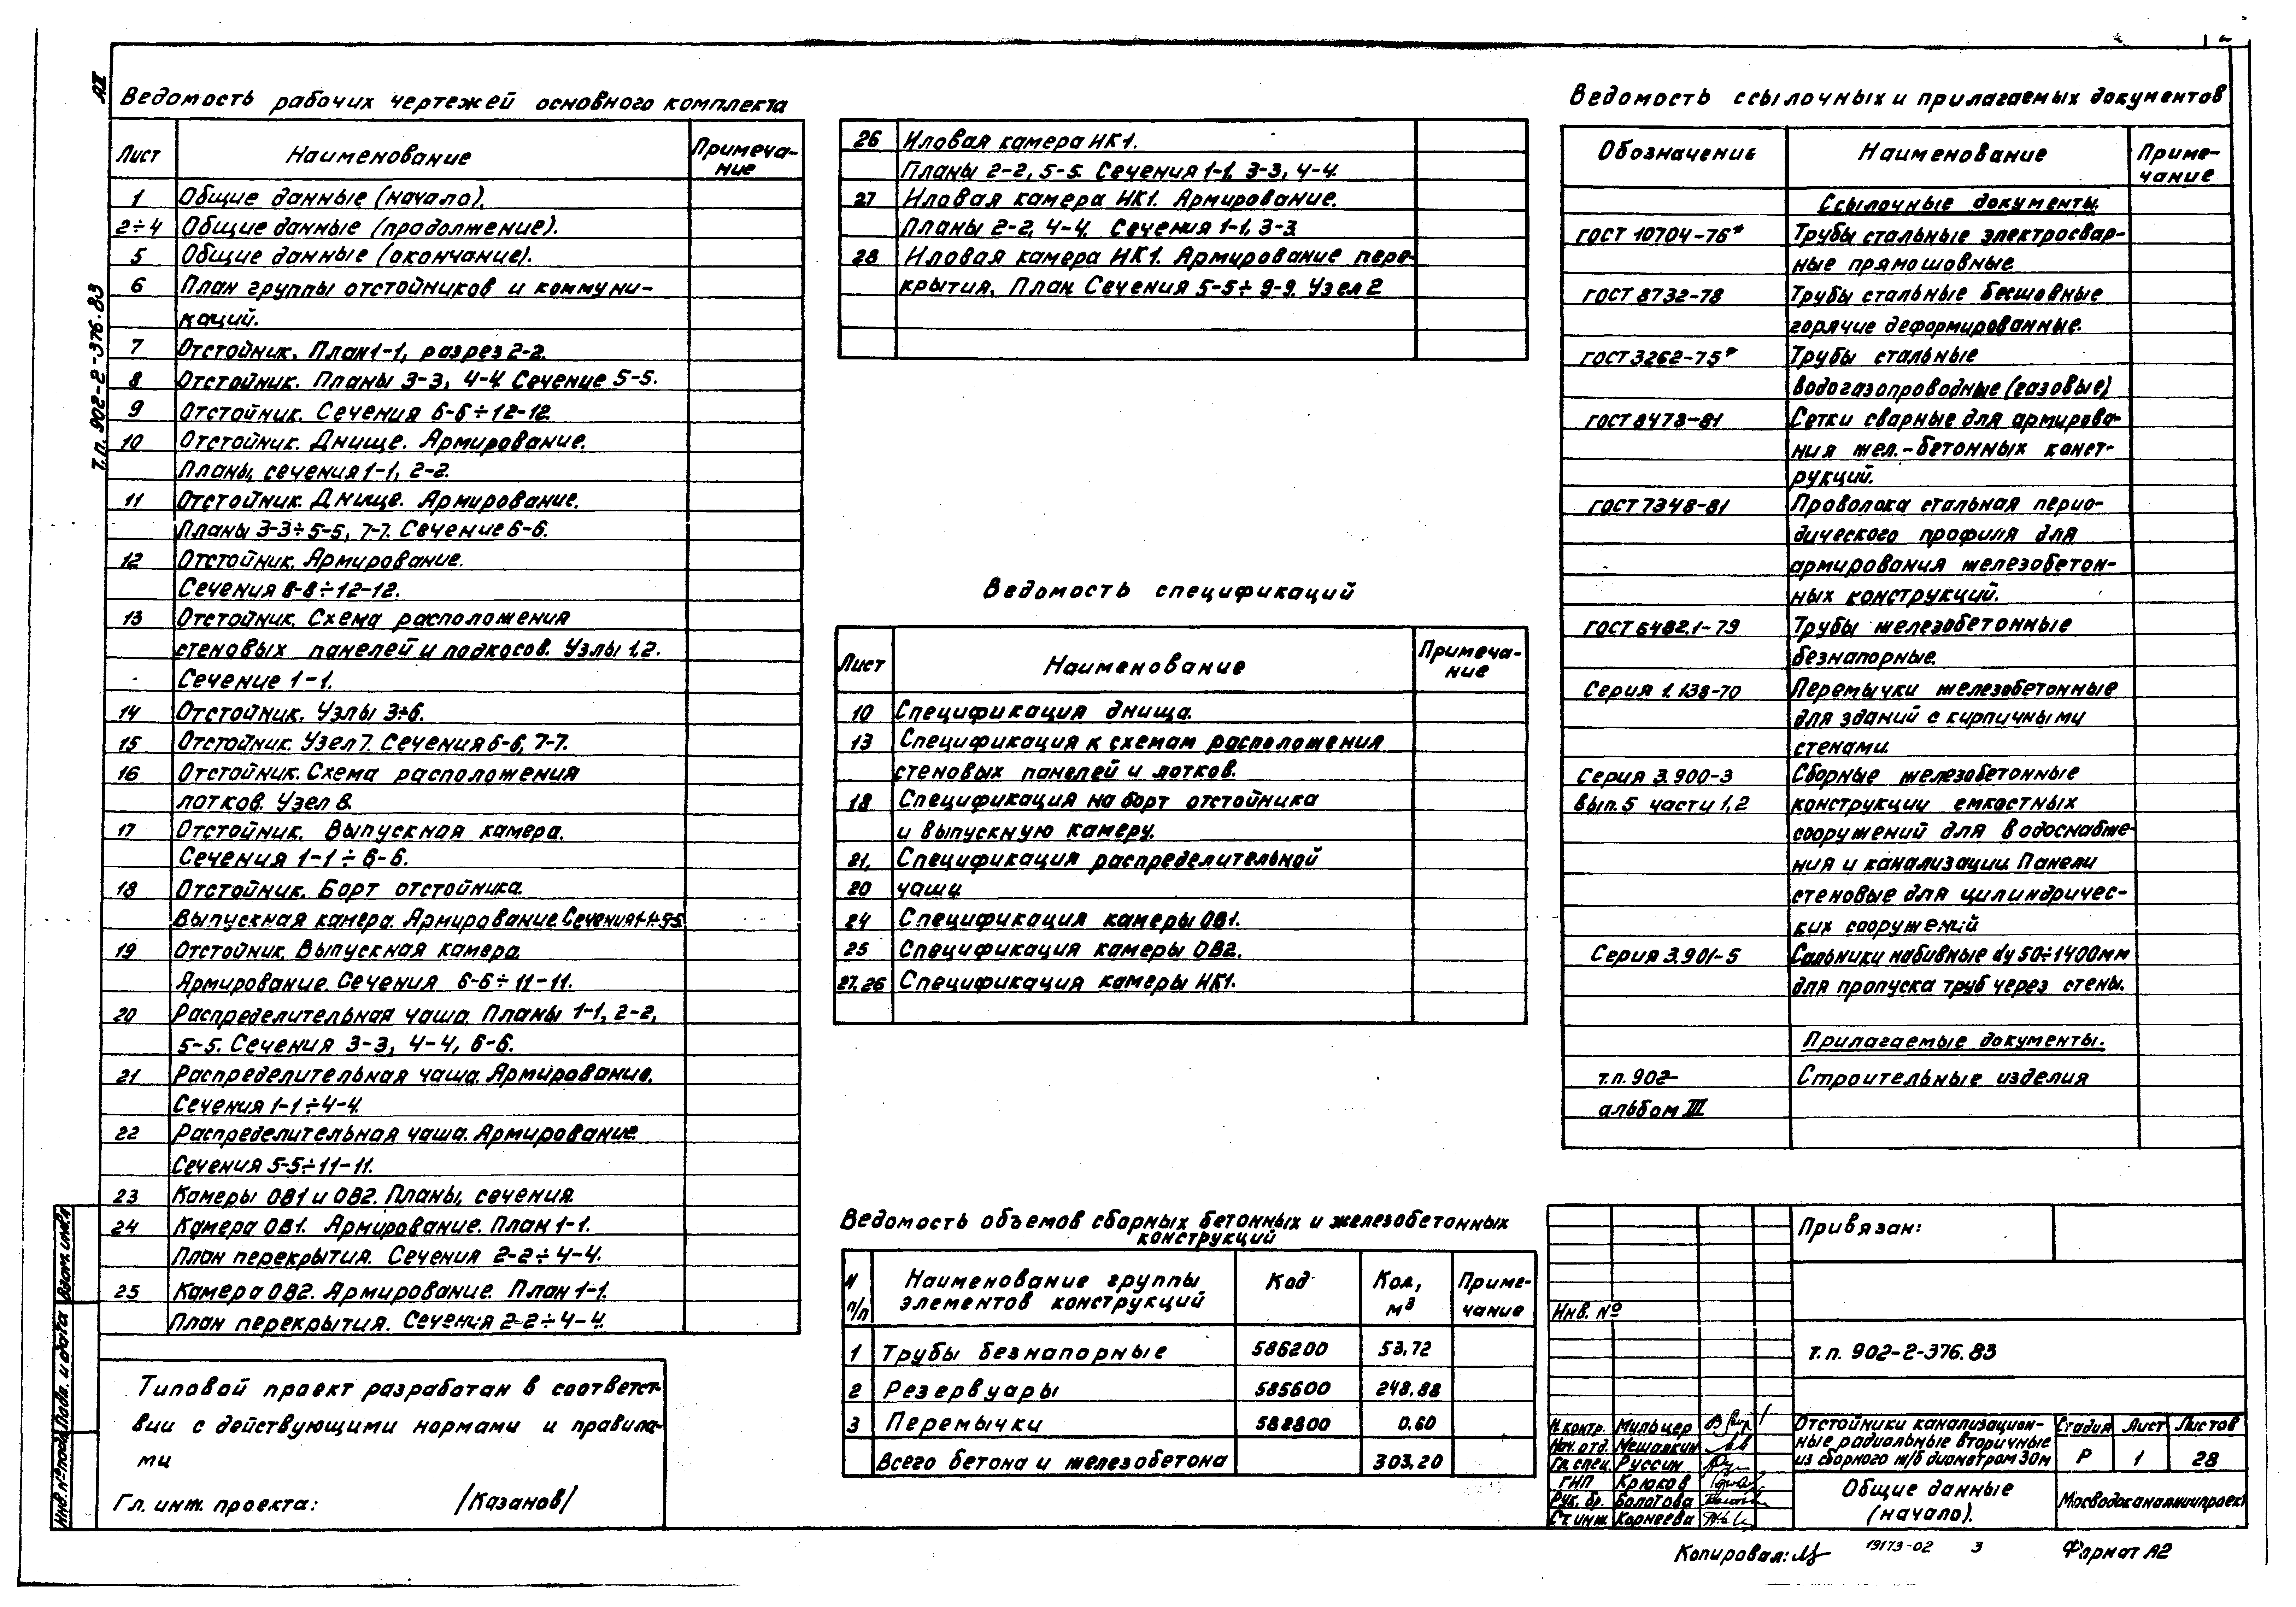 АII
т.п. 902-2-376.83
Ведомость рабочих чертежей основного комплекта
Лист Наименование Примеча-
ние
1 Общие данные (начало).
2÷4 Общие данные (продолжение).
5 Общие данные (окончание).
6 План группы отстойников и коммуни-
каций.
7 Отстойник. План 1-1, разрез 2-2.
8 Отстойник. Планы 3-3, 4-4. Сечение 5-5.
9 Отстойник. Сечения 6-6÷12-12.
10 Отстойник. Днище. Армирование.
Планы, сечения 1-1, 2-2.
11 Отстойник. Днище. Армирование.
Планы 3-3÷5-5, 7-7. Сечение 6-6.
12 Отстойник. Армирование.
Сечения 8-8÷12-12.
13 Отстойник. Схема расположения
стеновых панелей и подкосов. Узлы 1,2.
Сечение 1-1.
14 Отстойник. Узлы 3÷6.
15 Отстойник. Узел 7. Сечения 6-6, 7-7.
16 Отстойник. Схема расположения
лотков. Узел 8.
17 Отстойник. Выпускная камера.
Сечения 1-1÷6-6.
18 Отстойник. Борт отстойника.
Выпускная камера. Армирование. Сечения 1-1÷5-5
19 Отстойник. Выпускная камера.
Армирование. Сечения 6-6÷11-11.
20 Распределительная чаша. Планы 1-1, 2-2,
5-5. Сечения 3-3, 4-4, 6-6.
21 Распределительная чаша. Армирование.
Сечения 1-1÷4-4.
22 Распределительная чаша. Армирование.
Сечения 5-5÷11-11.
23 Камеры ОВ1 и ОВ2. Планы, сечения.
24 Камера ОВ1. Армирование. План 1-1.
План перекрытия. Сечения 2-2÷4-4.
25 Камера ОВ2. Армирование. План 1-1.
План перекрытия. Сечения 2-2÷4-4.
Типовой проект разработан в соответст-
вии с действующими нормами и правила-
ми
Гл. инж. проекта: /Казанов/
26 Иловая камера ИК1.
Планы 2-2, 5-5. Сечения 1-1, 3-3, 4-4.
27 Иловая камера ИК1. Армирование.
Планы 2-2, 4-4. Сечения 1-1, 3-3.
28 Иловая камера ИК1. Армирование пере-
крытия. План. Сечения 5-5÷9-9. Узел 2
Ведомость спецификаций
Лист Наименование Примеча-
ние
10 Спецификация днища.
13 Спецификация к схемам расположения
стеновых панелей и лотков.
18 Спецификация на борт отстойника
и выпускную камеру.
21, Спецификация распределительной
20 чаши.
24 Спецификация камеры ОВ1.
25 Спецификация камеры ОВ2.
27,26 Спецификация камеры ИК1.
Ведомость объемов сборных бетонных и железобетонных
конструкций
N п/п Наименование группы элементов конструкций Код Кол, м³ Приме-
чание
1 Трубы безнапорные 586200 53,72
2 Резервуары 585600 248,88
3 Перемычки 582800 0,60
Всего бетона и железобетона 303,20
Ведомость ссылочных и прилагаемых документов
Обозначение Наименование Приме-
чание
Ссылочные документы.
ГОСТ 10704-76* Трубы стальные электросвар-
ные прямошовные
ГОСТ 8732-78 Трубы стальные бесшовные
горячие деформированные.
ГОСТ 3262-75* Трубы стальные
водогазопроводные (газовые)
ГОСТ 8478-81 Сетки сварные для армирова-
ния жел.-бетонных конст-
рукций.
ГОСТ 7348-81 Проволока стальная перио-
дического профиля для
армирования железобетон-
ных конструкций.
ГОСТ 6482.1-79 Трубы железобетонные
безнапорные.
Серия 1.138-70 Перемычки железобетонные
для зданий с кирпичными
стенами.
Серия 3.900-3 Сборные железобетонные
вып.5 части 1,2 конструкции емкостных
сооружений для водоснабже-
ния и канализации. Панели
стеновые для цилиндричес-
ких сооружений
Серия 3.901-5 Сальники набивные dу 50÷1400мм
для пропуска труб через стены.
Прилагаемые документы.
т.п. 902- Строительные изделия
альбом III
Привязан:
Инв. №
т.п. 902-2-376.83
Н.контр. Мильцер
Нач.отд. Мешалкин
Гл.спец. Руссин
ГИП Крюков
Рук. бр. Болотова
Ст.инж. Корнеева
Отстойники канализацион-
ные радиальные вторичные
из сборного ж/б диаметром 30м
Стадия Лист Листов
Р 1 28
Общие данные
(начало).
Мосводоканалниипроект
Взам. инв.№
Подп. и дата
Инв. № подл.
Копировал: 19173-02 3 Формат А2